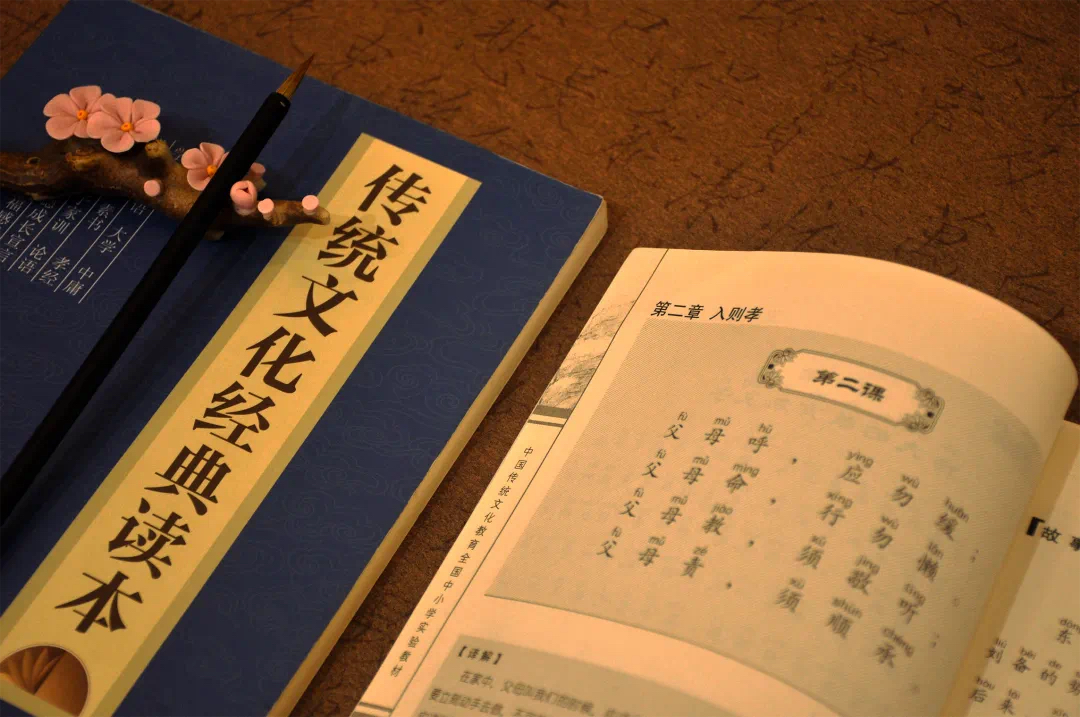 传统文化经典读本
大学 中庸
论语 孝经
第二章 入则孝
第二课
fù mǔ hū yìng wù huǎn
父母呼，应勿缓；
fù mǔ mìng xíng wù lǎn
父母命，行勿懒。
fù mǔ jiào xū jìng tīng
父母教，须敬听；
fù mǔ zé xū shùn chéng
父母责，须顺承。
中国传统文化教育全国中小学实验教材
【译解】
在家中，父母叫我们的时候，
要立刻动手去做，
【故事
东
刘备的
后来